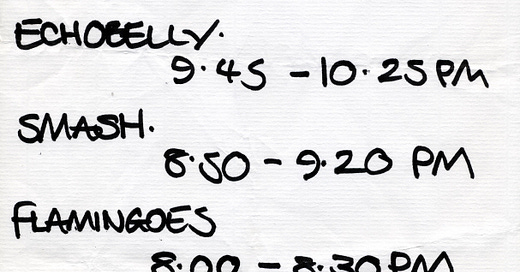 ECHOBELLY.
9.45 - 10.25 PM
SMASH.
8.50 - 9.20 PM
FLAMINGOES
8.00 - 8.30 PM